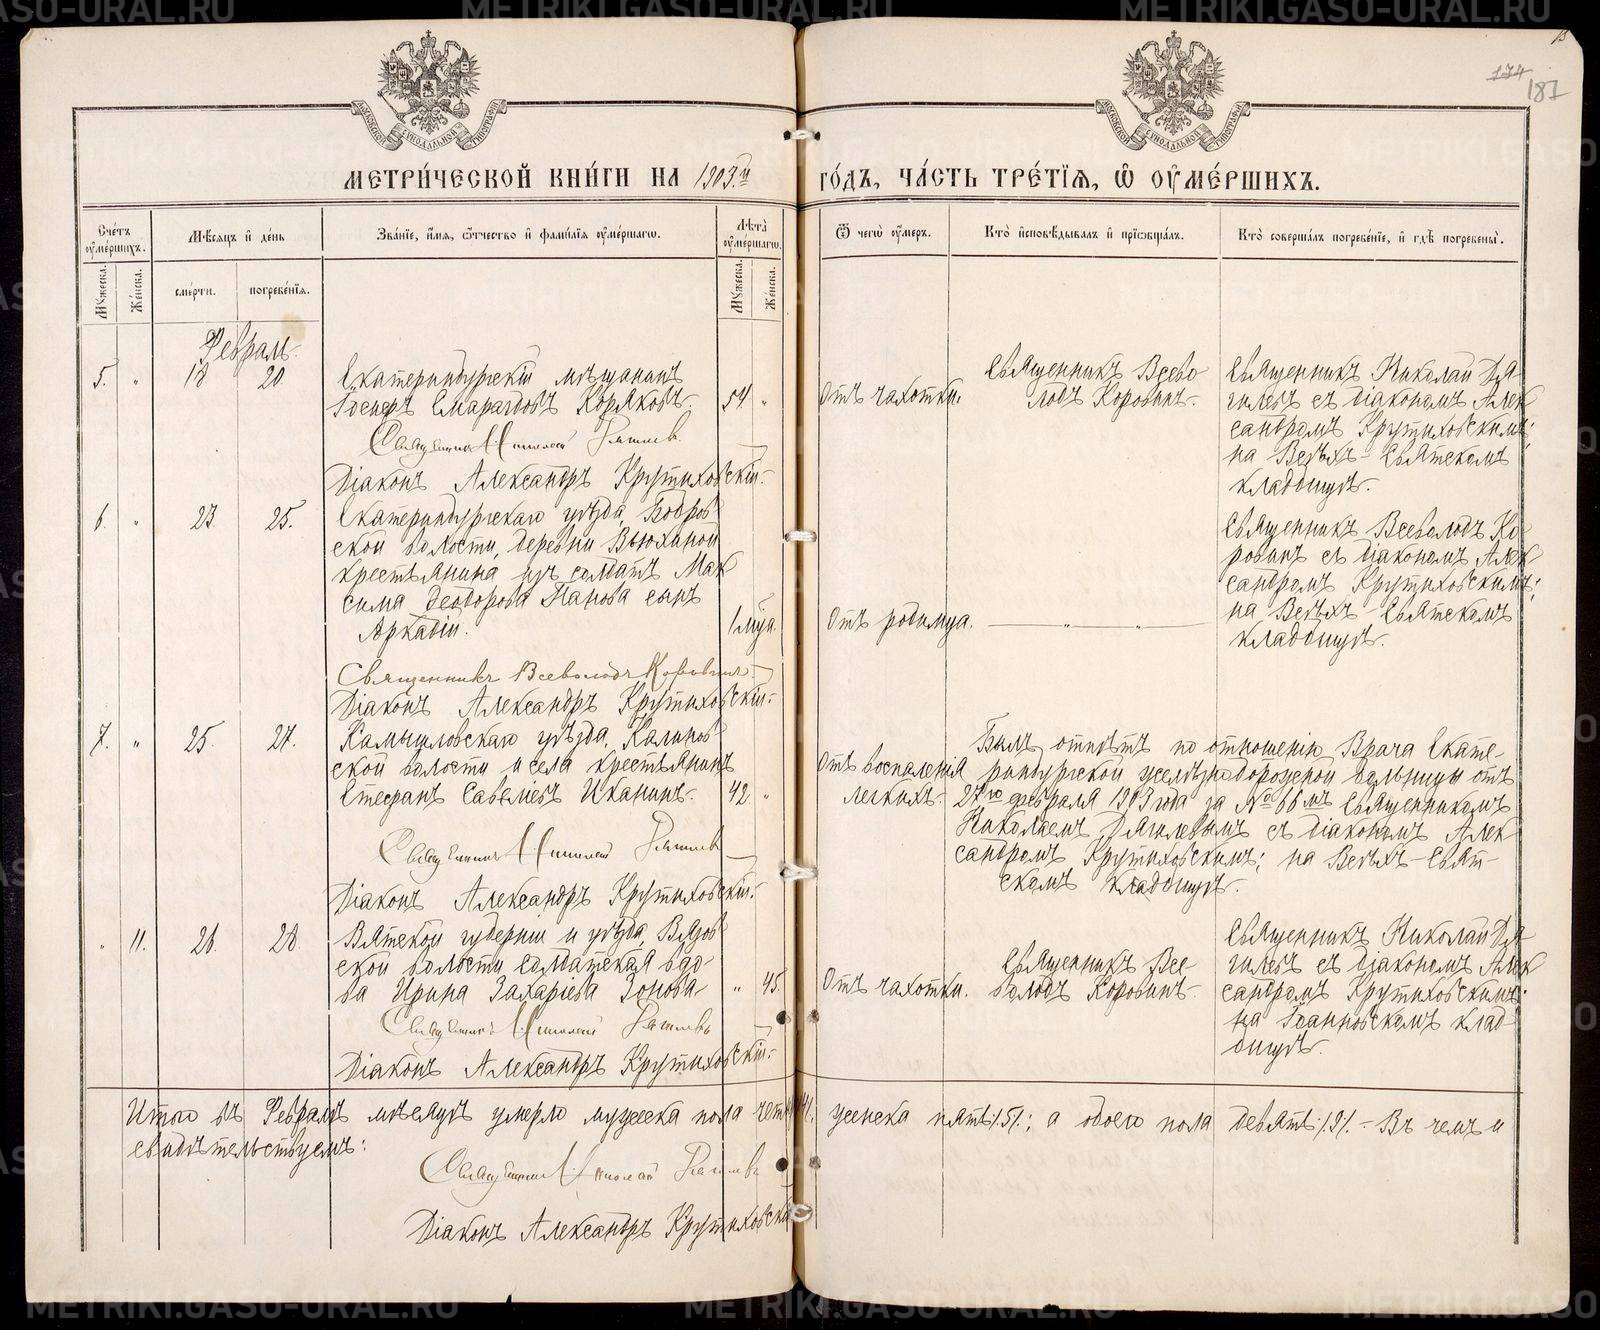 МЕТРИ́ЧЕСКОЙ КНИ́ГИ НА 1903й ГО́ДЪ, ЧА́СТЬ ТРЕ́ТІѦ, Ѡ ОУМЕ́РШИХЪ.
174
181
Сче́тъ оуме́ршихъ.
Мѣ́сяцъ и҆ де́нь
Зва́нїе, и҆́мя, ѻ҆́тчество и҆ фамилїя оуме́ршагѡ.
Лѣ́та оуме́ршагѡ.
Ѿ чегѡ̀ оу́меръ.
Кто̀ и҆сповѣ́дывалъ и҆ прїѡбща́лъ.
Кто̀ соверша́лъ погребе́нїе, и҆ гдѣ̀ погребены̀.
Мꙋжеска.
Же́нска.
сме́рти.
погребе́нїя.
Мꙋжеска.
Же́нска.
Февраль.
5. " 18 20. Екатеринбургскій мѣщанинъ
Іосифъ Смарагдовъ Коряковъ. 54. "
Священникъ Николай Дягилевъ
Діаконъ Александръ Крутиховскій.
Отъ чахотки.
Священникъ Всево
лодъ Коровинъ.
Священникъ Николай Дя
гилевъ съ діакономъ Алек
сандромъ Крутиховскимъ;
на Верхъ-Исетскомъ
кладбищѣ.
6. " 23. 25. Екатеринбургскаго уѣзда, Бобров
ской волости, деревни Вьюхиной
крестьянина изъ солдатъ Мак
сима Ѳеодорова Панова сынъ
Аркадій. 1 мѣца
Священникъ Всеволодъ Коровинъ
Діаконъ Александръ Крутиховскій.
Отъ родимца. " "
Священникъ Всеволодъ Ко
ровинъ съ діакономъ Алек
сандромъ Крутиховскимъ;
кладбищѣ.
7. " 25. 27. Камышловскаго уѣзда, Калинов
ской волости и села крестьянинъ
Стефанъ Савельевъ 42 "
Священникъ Николай Дягилевъ
Діаконъ Александръ Крутиховскій.
Отъ воспаления
легкихъ.
Былъ отпѣтъ по отношенію Врача Екате-
ринбургской желѣзнодорожной больницы отъ
27го февраля 1903 года за №66мъ Священникомъ
Николаемъ Дягилевымъ съ діакономъ Алек
сандромъ Крутиховскимъ;
кладбищѣ.
" 11. 26. 28. Вятской губерніи и уѣзда, Вязов
ской волости солдатская вдо
ва Ирина Захаріева Зонова " 45.
Священникъ Николай Дягилевъ
Діаконъ Александръ Крутиховскій.
Отъ чахотки.
Священникъ Все-
володъ Коровинъ.
Священникъ Николай Дя
гилевъ съ діакономъ Алек
сандромъ Крутиховскимъ;
на Іоанновскомъ клад
бищѣ.
Итого въ Февралѣ мѣсяцѣ умерло мужеска пола четыре /4/. женска пять /5/.; а обоего пола девять /9/. – Въ чемъ и
свидѣтельствуемъ:
Священникъ Николай Дягилевъ
Діаконъ Александръ Крутиховскій
METRIKI.GASO-URAL.RU